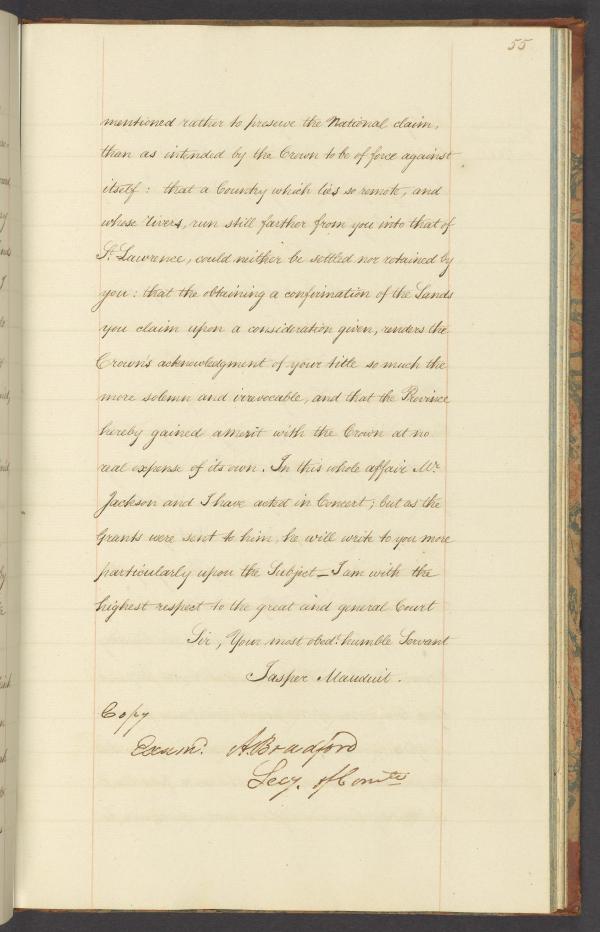 55
mentioned rather to preserve the National claim,
than as intended by the Crown to be of force against
itself: that a Country which lies so remote, and
whose rivers, run still farther from you into that of
St. Lawrence, could neither be settled nor retained by
you: that the obtaining a confirmation of the Lands
you claim upon a consideration given, renders the
Crown's acknowledgment of your title so much the
more solemn and irrevocable, and that the Province
hereby gained a merit with the Crown at no
real expense of its own. In this whole affair Mr.
Jackson and I have acted in Concert; but as the
Grants were sent to him, he will write to you more
particularly upon the Subject_I am with the
highest respect to the great and general Court
Sir, Your most obedt. humble Servant
Jasper Mauduit.
Copy
Examd. A. Bradford
Secy. of Comth